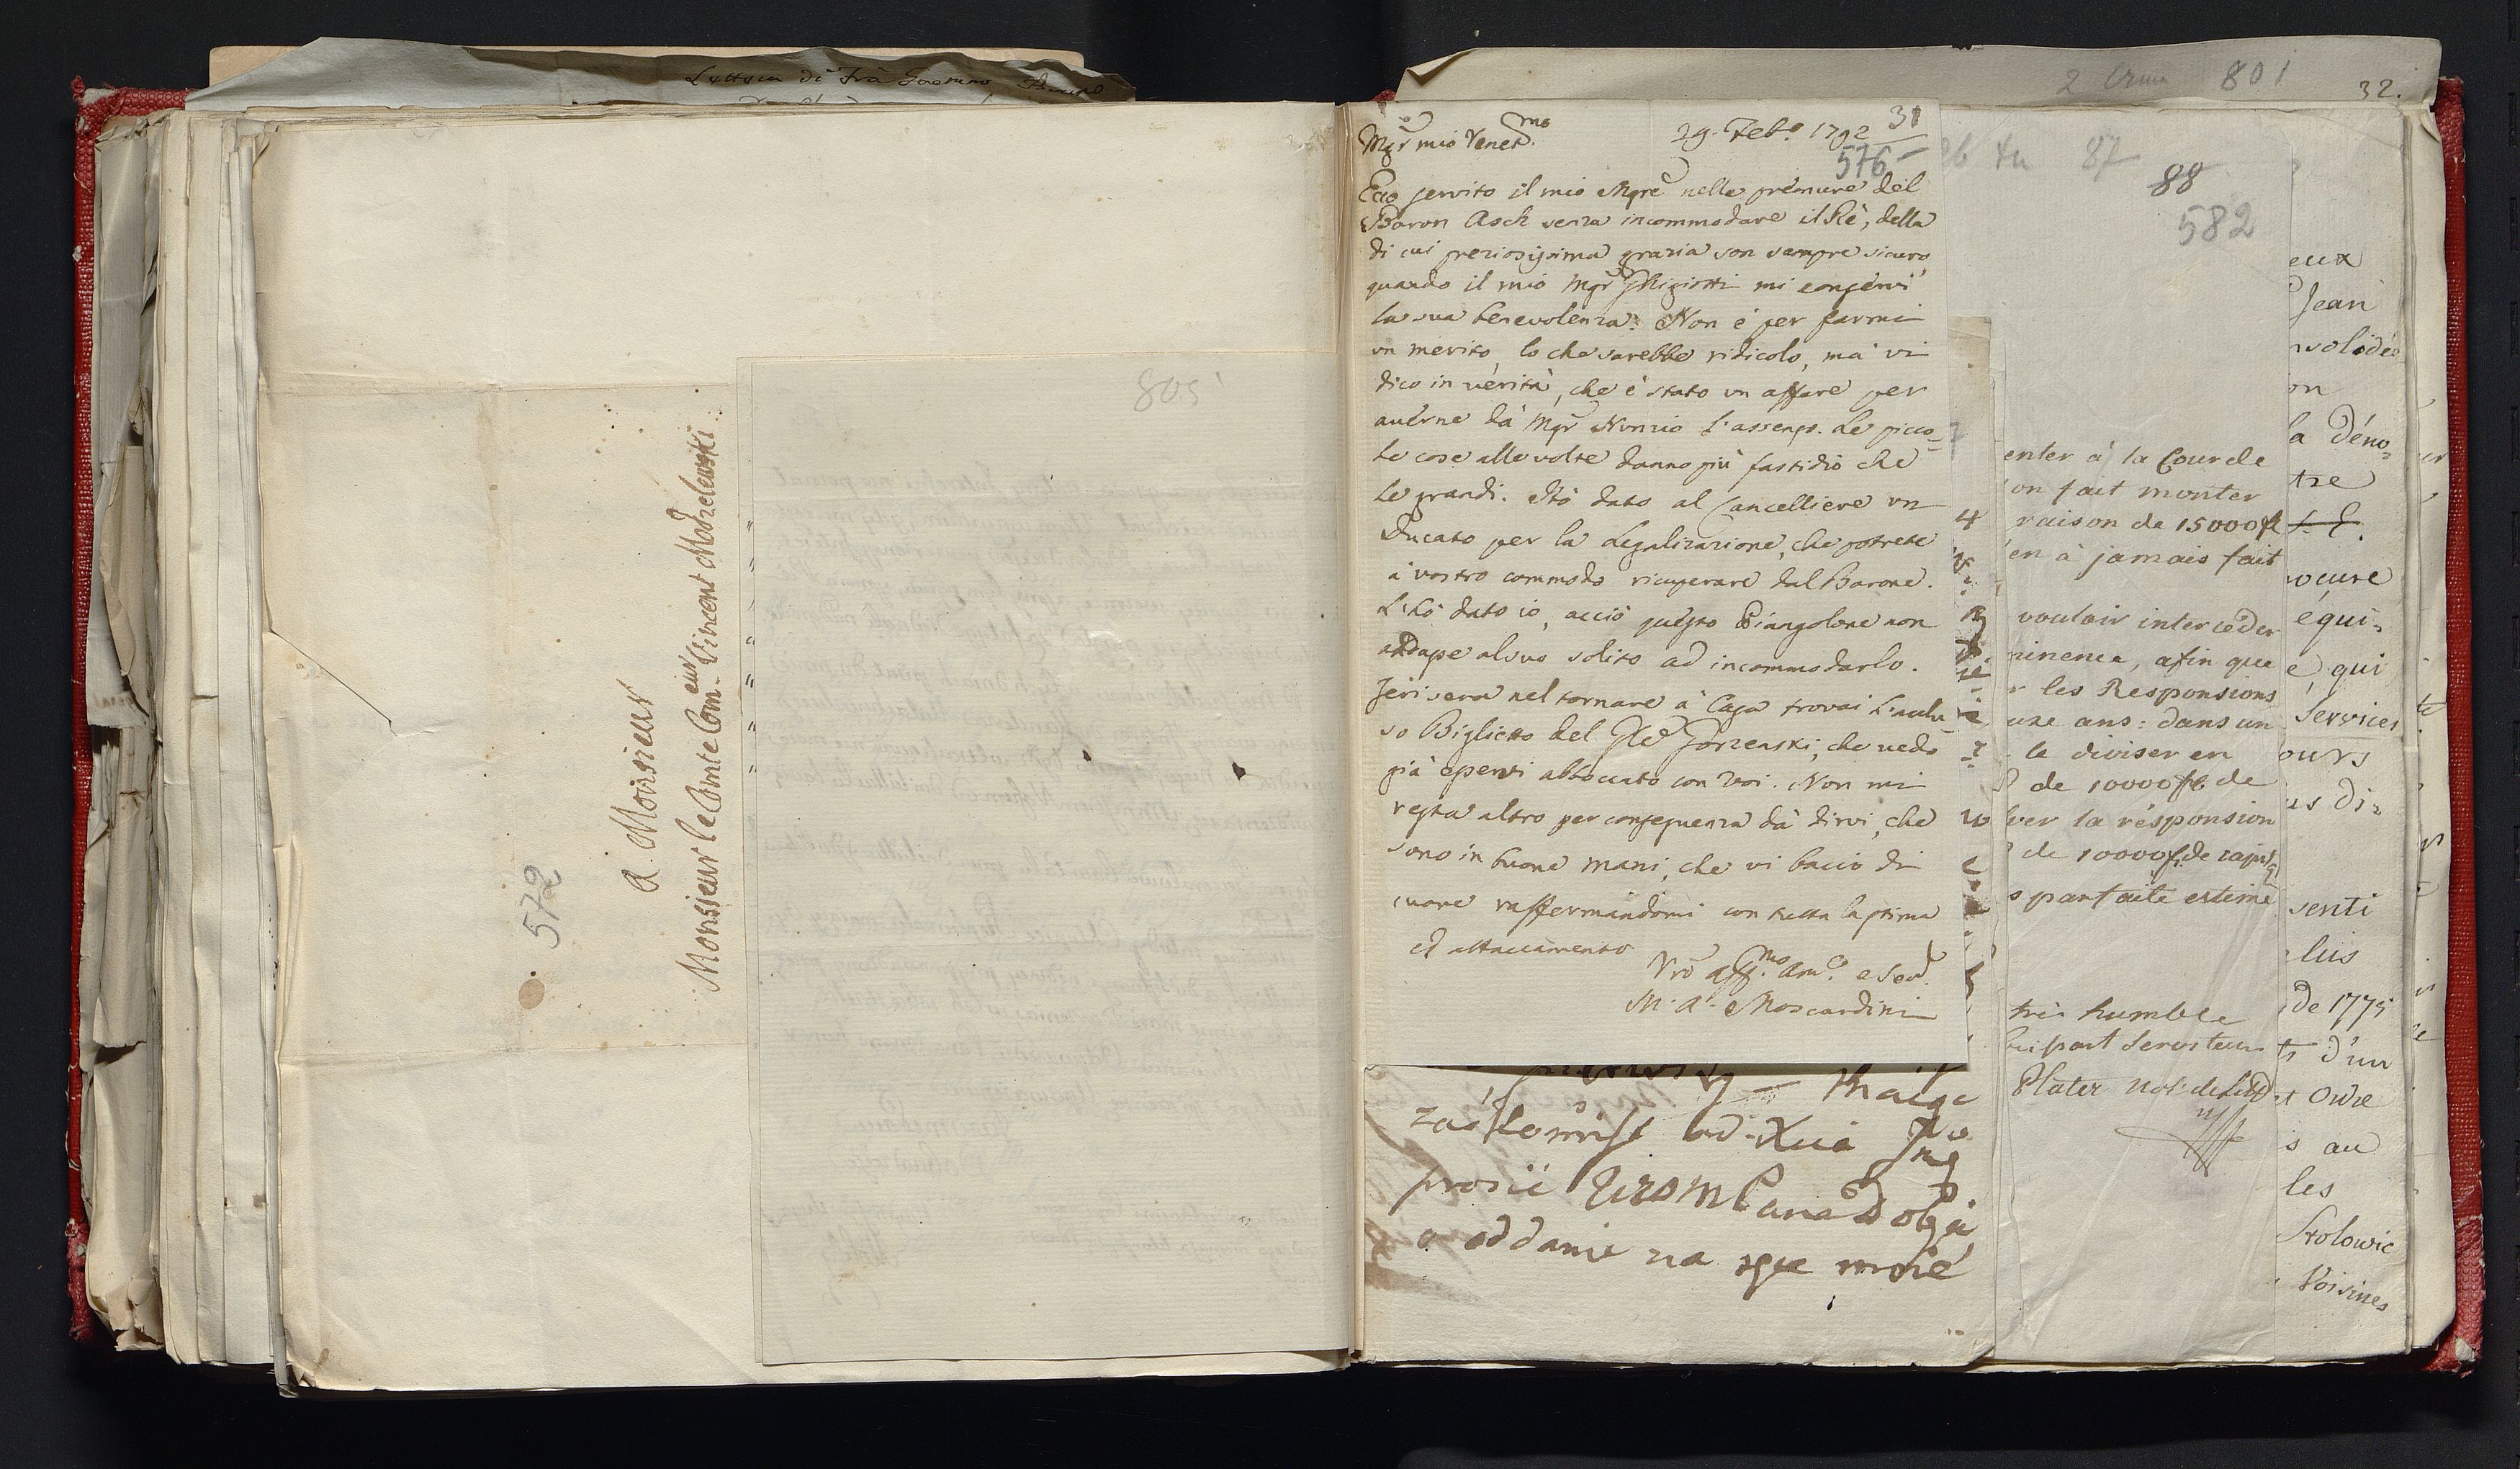 Lettera di Frà Gaetano
805
572
A Monsieur
Monsieur le Comte Com.eur Vincent Modzelewski
Mgr mio Venermo
29. Feb.o 1792
31
576
Ecco servito il mio Mgre nelle premure del
Baron Asch senza incommodare il Rè, della
di cui preziosissima grazia son sempre sicuro
quando il mio Mgr Ghigiotti mi conservi
la sua benevolenza. Non è per farmi
un merito, lo che sarebbe ridicolo, mà vi
dico in verità, che è stato un affare per
averne dà Mgr Nunzio l'assenso. Le picco-
le cose alle volte danno più fastidio che
le grandi. Hò dato al Cancelliere un
Ducato per la Legalizazione, che potrete
à vostro commodo ricuperare dal Barone.
L'hò dato io, acciò questo Piangolone non
andasse al suo solito ad incommodarlo.
Jeri sera nel tornare à Casa trovai l'acclu-
so Biglietto del Gle Gorzenski, che vedo
già essersi abboccato con voi. Non mi
resta altro per conseguenza dà dirvi, che
sono in buone mani, che vi baccio di
cuore raffermandomi con tutta la stima
ed attaccamento
Vro affmo amo e Sere
M. A. Moscardini
od Xcia Jmg
prosić
a oddanie na ręce moie
2 801
32.
87
88
582
enter à la Cour de
on fait monter
raison de 15000 fl
en à jamais fait
vouloir interceder
minence, afin que
r les Responsions
uze ans: dans un
le diviser en
de 10000 fl de
ver la résponsion
de 10000 f. de
s parfaite estime
très humble
Serviteur
Plater
eux
Jean
nsolidée
on
la déno=
tre
ocure
équi=
e, qui
Services
ours
us di=
senti
lus
de 1775
ts d'un
Odre
s au
les
Stolowic
Voisines